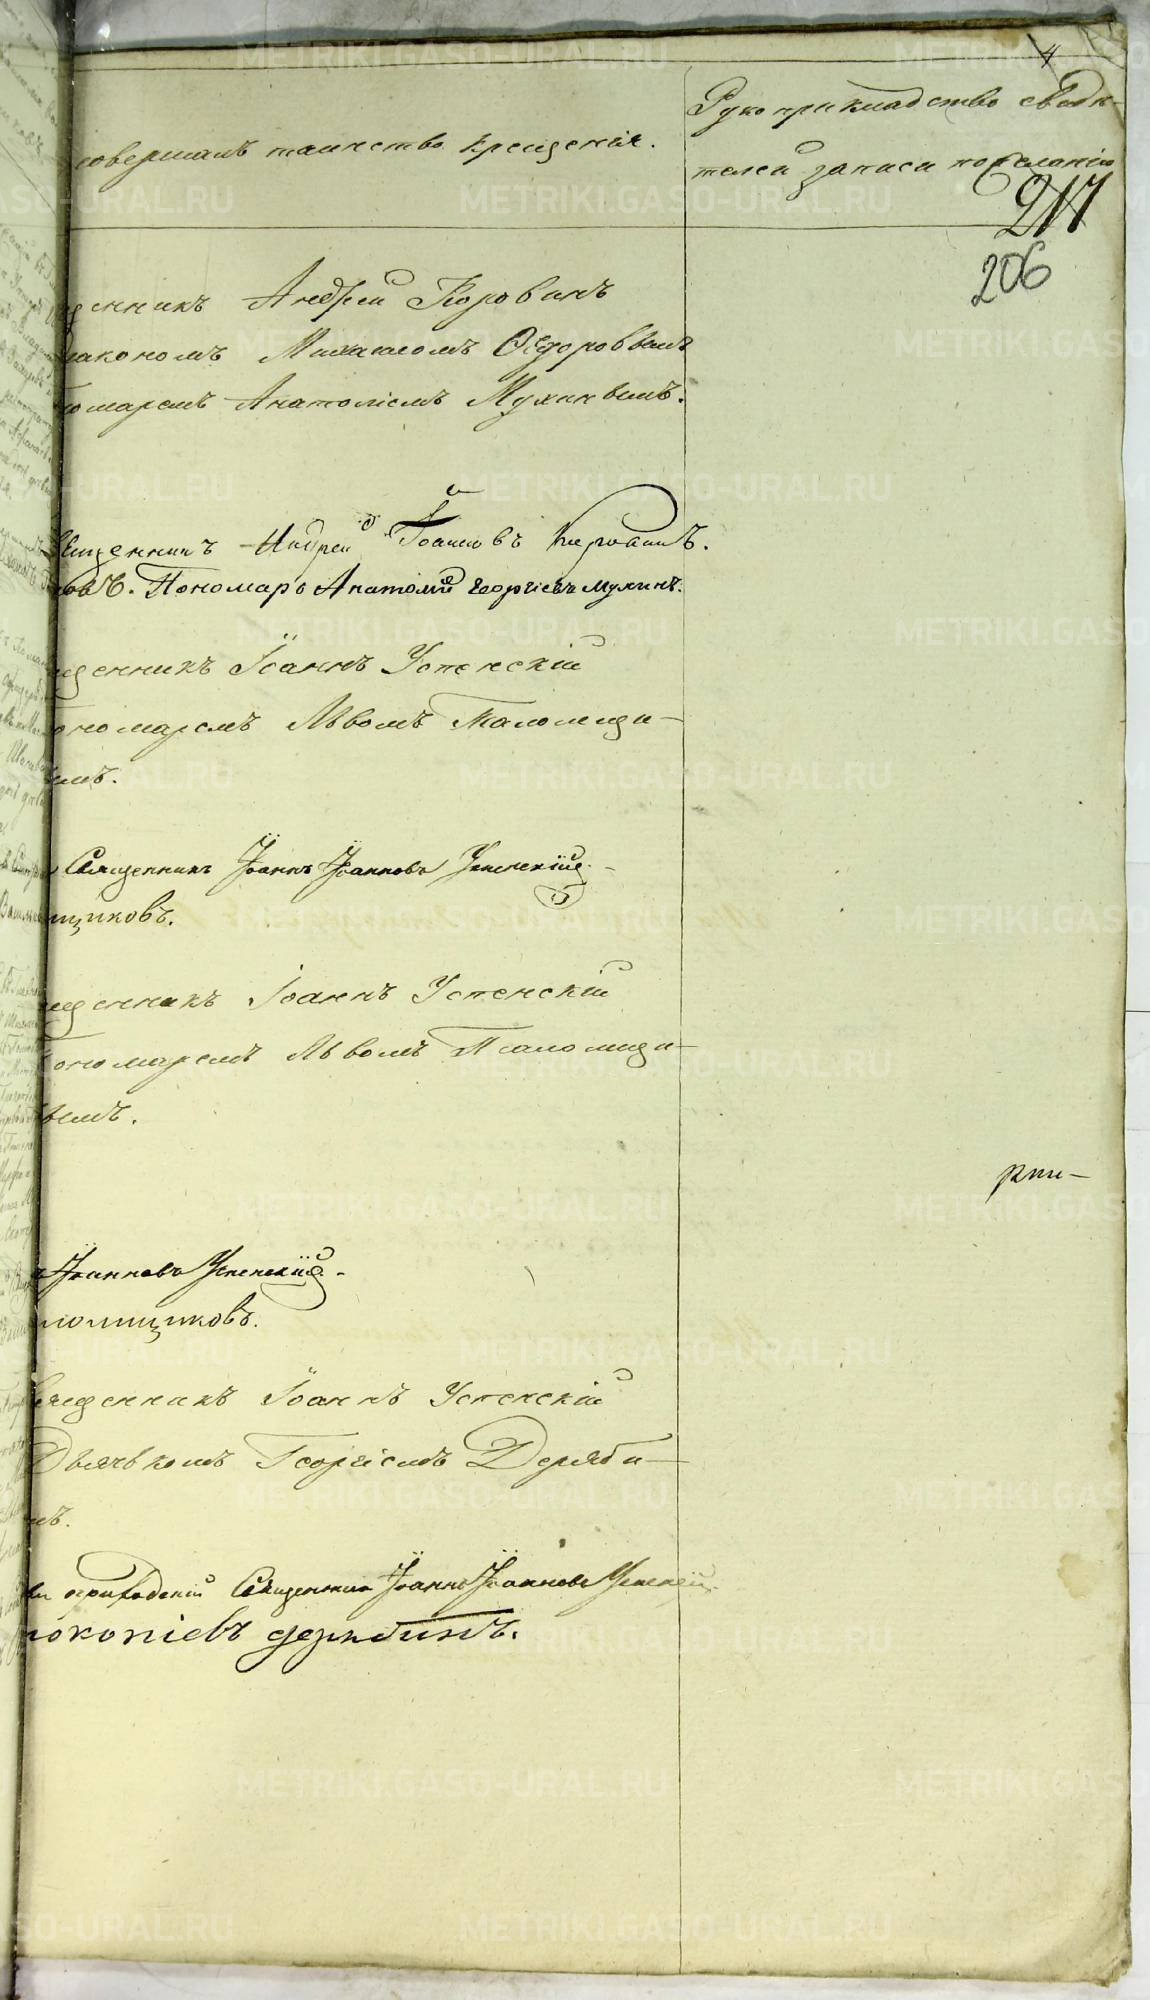 4
Рукоприкладство свидѣ-
совершалъ таинство крещенія.
телей записи по желанію
217
206
щенникъ Андрей Коровинъ
иакономъ Михаиломъ Ѳедоровымъ
номаремъ Анатоліемъ Мухинымъ.
вященникъ Андрей Іоанновъ Коровинъ.
ровъ. Пономарь Анатолій Георгіевъ Мухинъ.
щенникъ Іоаннъ Успенскій
ономаремъ Львомъ Паломщи-
ымъ.
Священникъ Іоаннъ Іоанновъ Успенскій.
щиковъ.
щенникъ Іоаннъ Успенскій
ономаремъ Львомъ Паломщи-
вымъ.
рти-
Іоанновъ Успенскій.
ломщиковъ.
вященникъ Іоаннъ Успенскій
Дьячькомъ Георгіемъ Деряби-
мъ.
Священникъ Іоаннъ Іоанновъ Успенскій.
рокопіевъ дерябинъ.